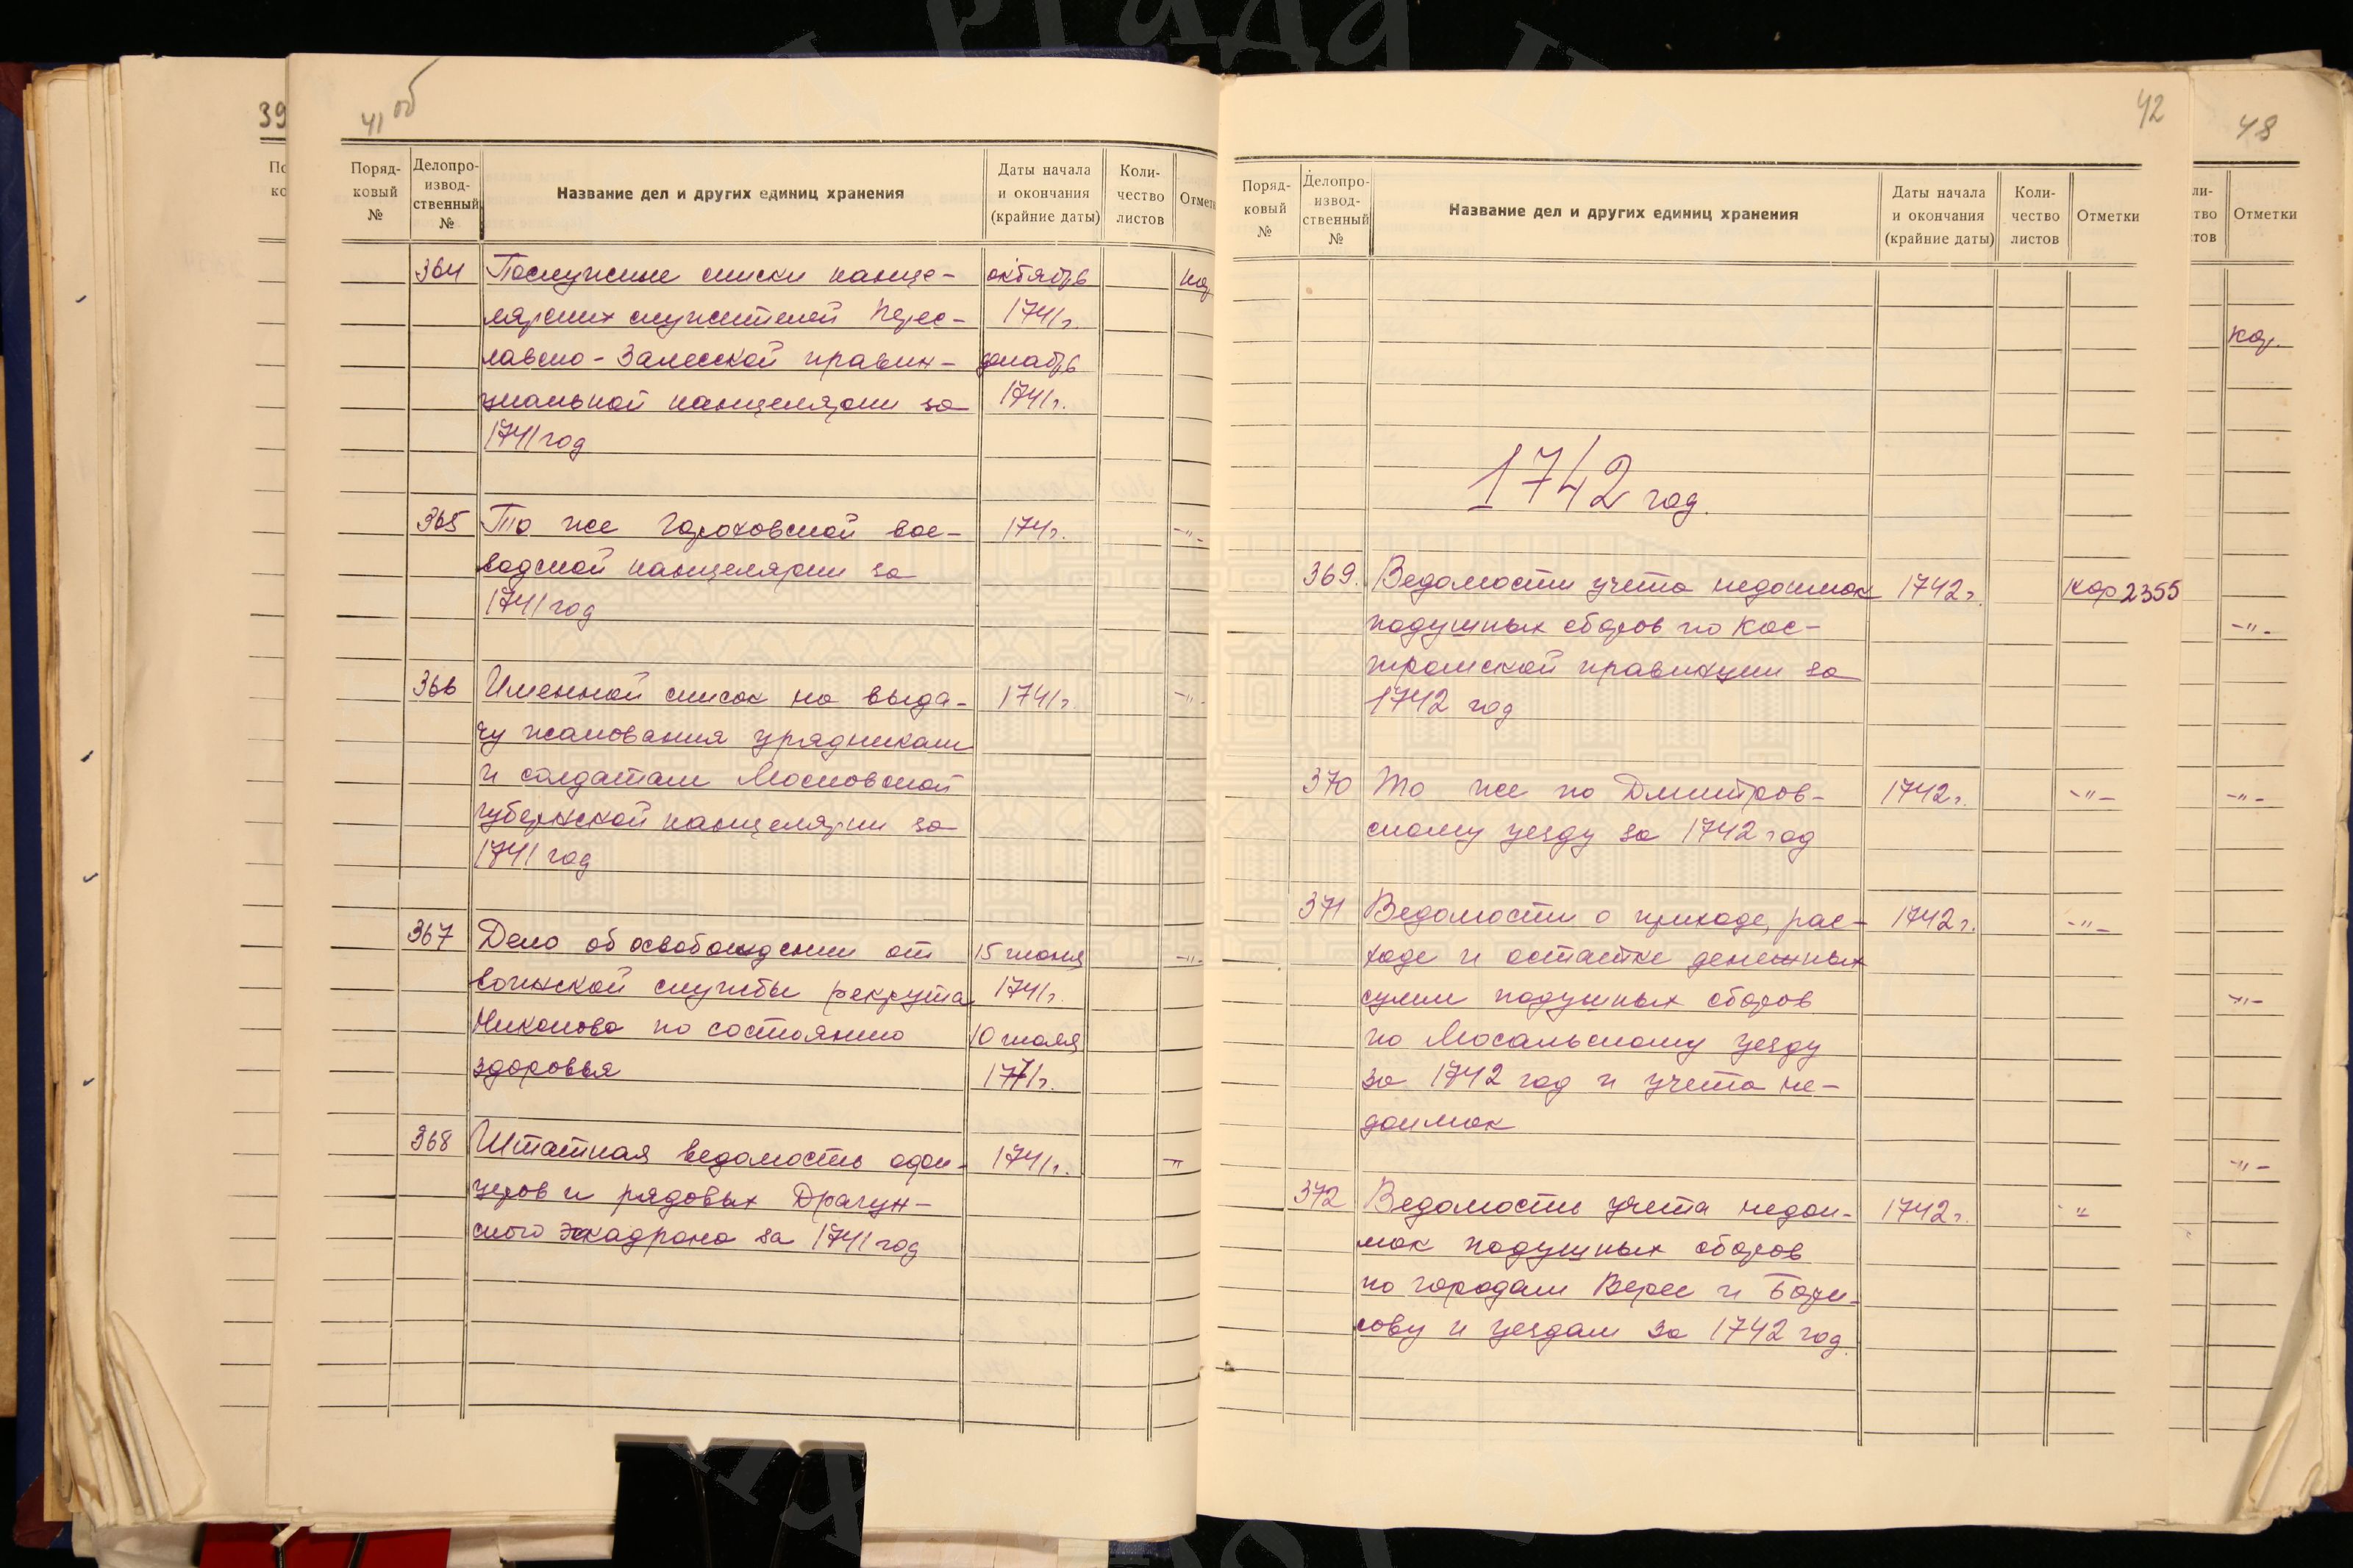 41 об
Поряд-
ковый
№
Делопро-
извод-
ственный
№
Название дел и других единиц хранения
Даты начала
и окончания
(крайние даты)
Коли-
чество
листов
364 Послужные списки канце- октябрь
лярских служителей Перес- 1741 г.
лавско-Залесской правин- декабрь
циальной канцелярии за 1741 г.
1741 год
365 То же Гороховской вое- 174 г. -"-
водской канцелярии за
1741 год
366 Именной список на выда- 1741 г. -"-
чу жалования урядникам
и солдатам Московской
губернской канцелярии за
1741 год
367 Дело об освобождении от 15 июня -"-
воинской службы рекрута 1741 г.
Никонова по состоянию 10 июля
здоровья 1771 г.
368 Штатная ведомость офи- 1741 г. -"-
церов и рядовых Драгун-
ского эскадрона за 1741 год
42
Поряд-
ковый
№
Делопро-
извод-
ственный
№
Название дел и других единиц хранения
Даты начала
и окончания
(крайние даты)
Коли-
чество
листов
Отметки
1742 год.
369. Ведомости учета недоимок 1742 г. кор 2355
подушных сборов по Кос-
тромской правинции за
1742 год
370 То же по Дмитров- 1742 г. -"-
скому уезду за 1742 год
371 Ведомости о приходе, рас- 1742 г. -"-
ходе и остатке денежных
сумм подушных сборов
по Мосальскому уезду
за 1742 год и учета не-
доимок
372 Ведомость учета недои- 1742 г. "
мок подушных сборов
по городам Верее и Бори-
сову и уездам за 1742 год.
39
48
Отметки
кор.
-"-
-"-
-"-
-"-